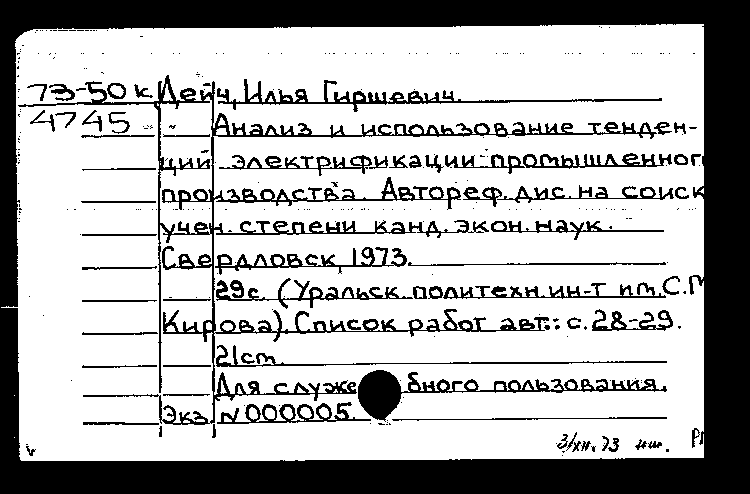 73-50к Дейч, Илья Гиршевич.
4745 Анализ и использование тенден-
ций электрификации промышленног
производства. Автореф. дис. на соиск
учен. степени канд. экон. наук.
Свердловск, 1973.
29с. (Уральск. политехн. ин-т им. С.М
Кирова). Список работ авт.: с. 28-29.
21cm.
Для служебного пользования.
Экз. N 000005.
3/XII.73